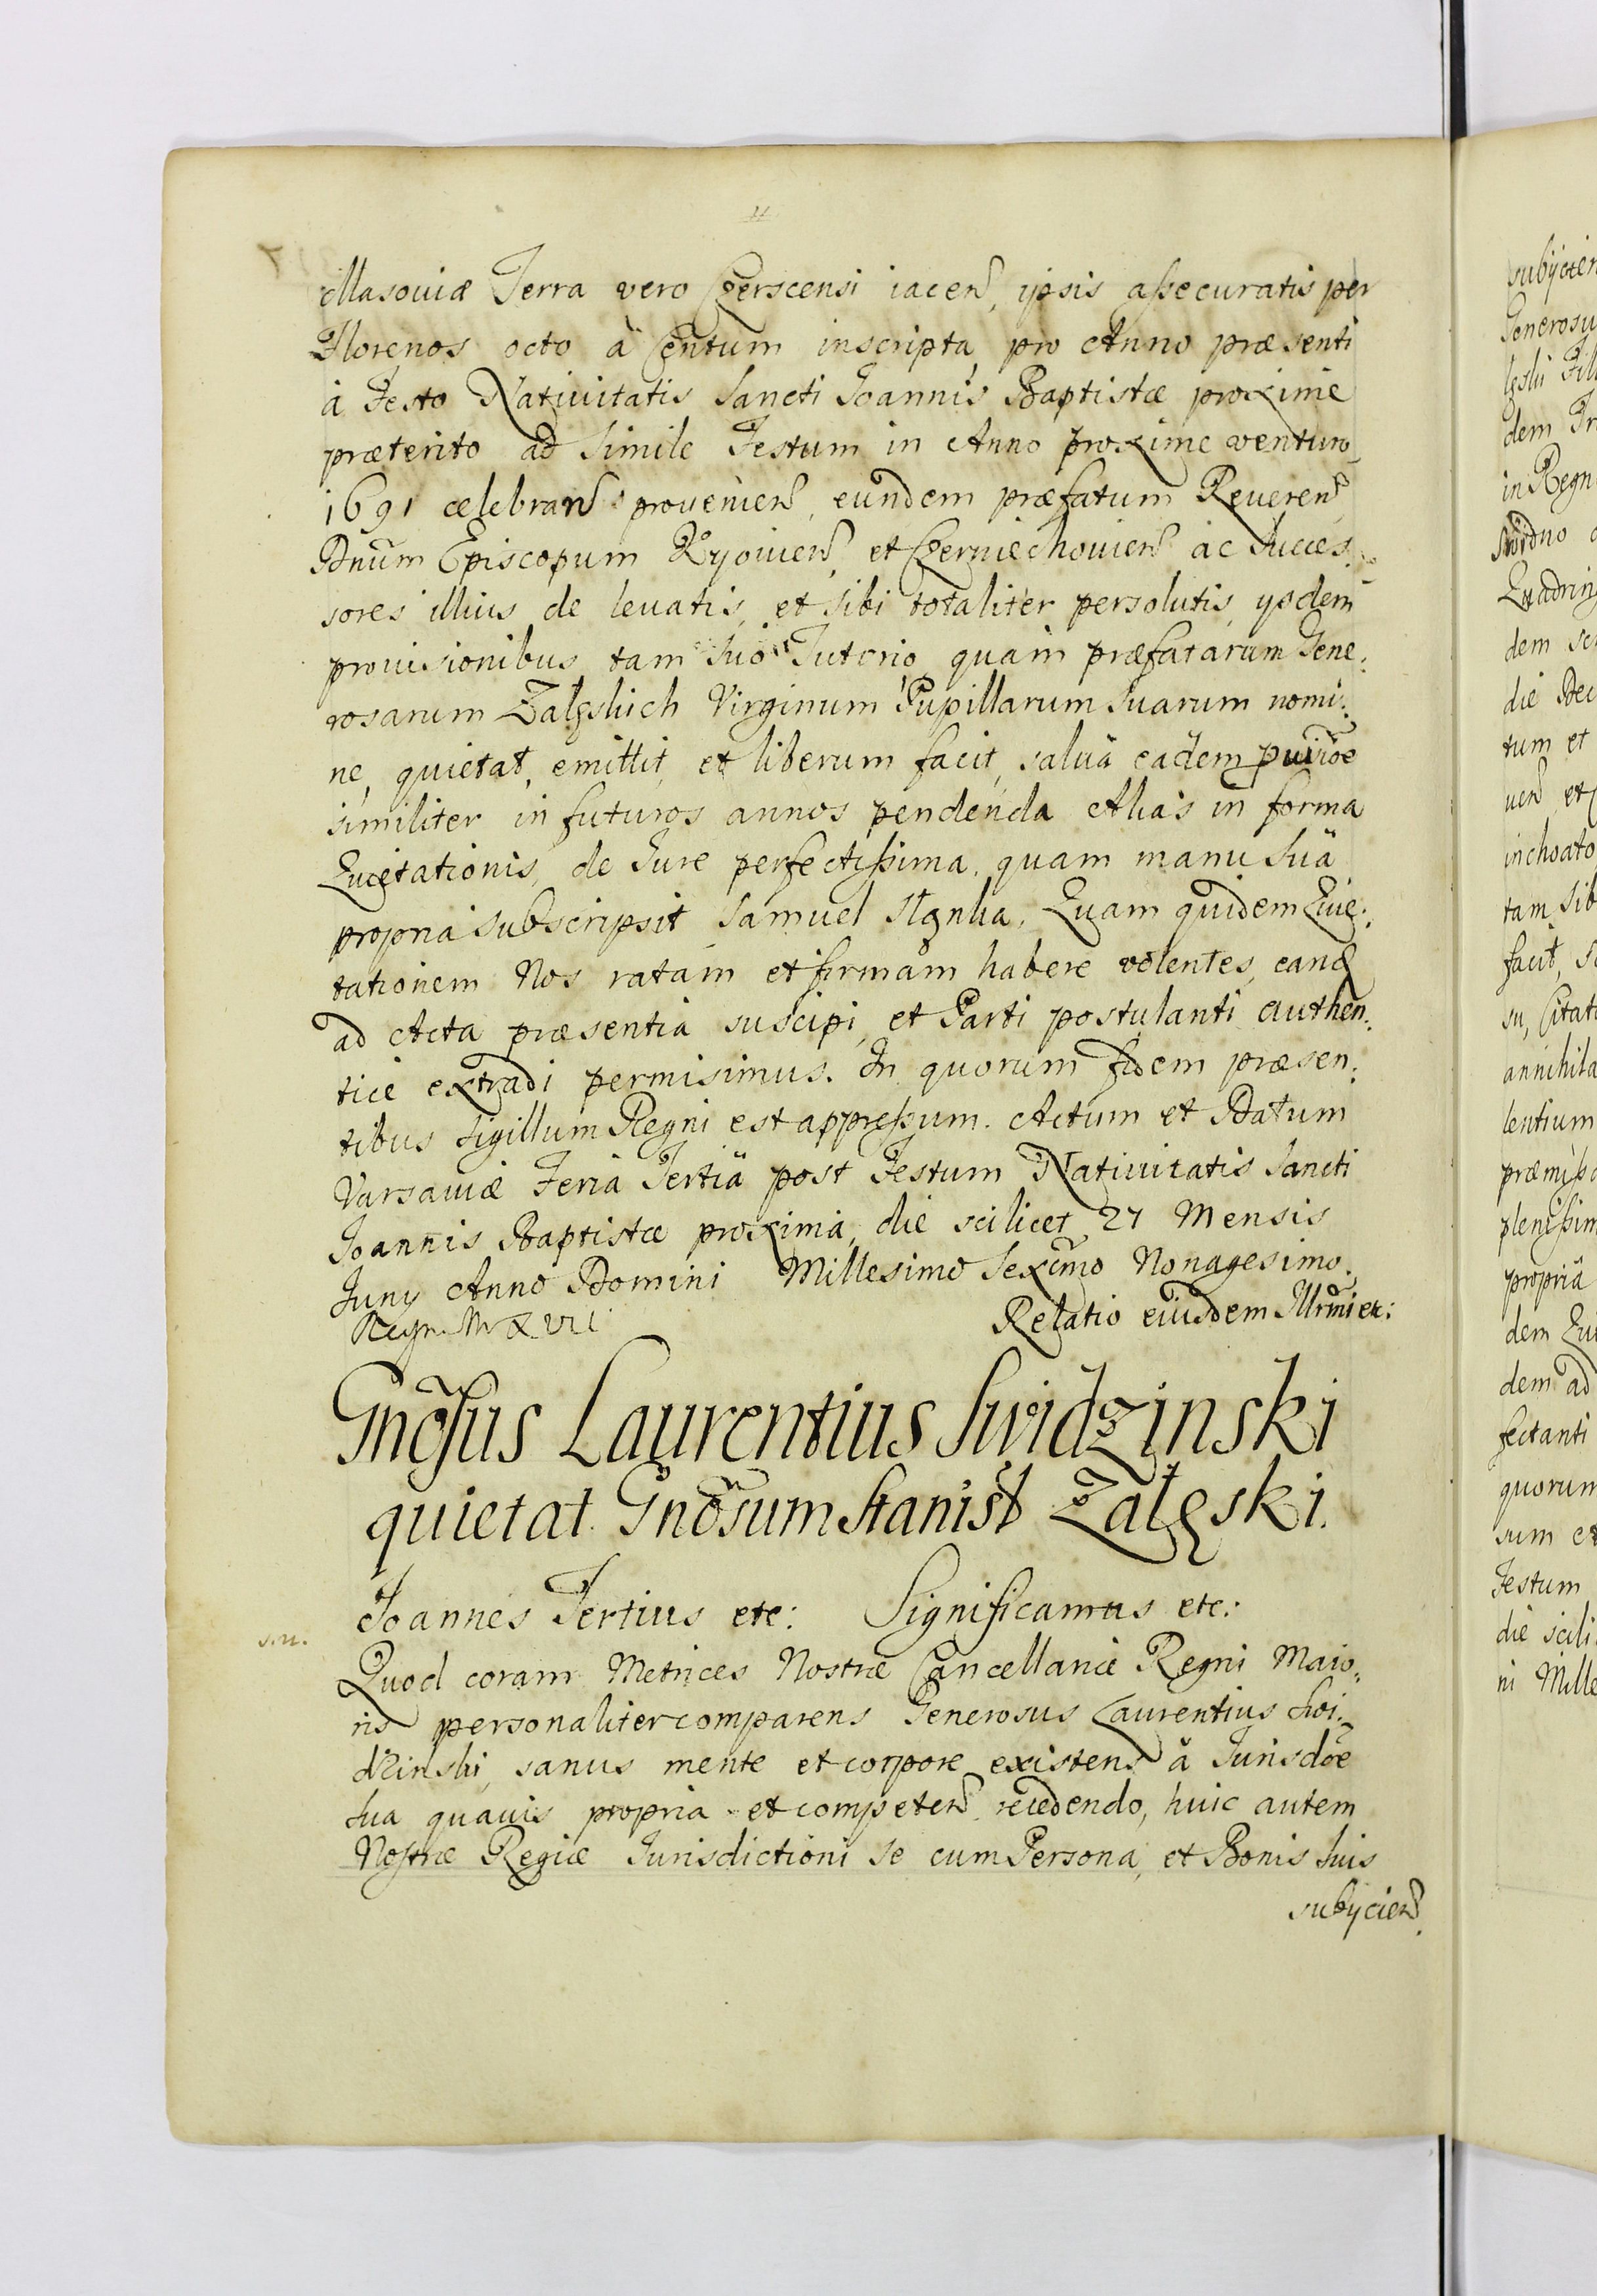 Masouiæ Terra vero Czerscensi iacen, ypsis assecuratis per
Florenos octo à Centum inscripta, pro Anno præsenti
à Festo Natiuitatis Sancti Joannis Baptistæ proxime
præterito ad simile Festum in Anno proxime venturo
1691 celebran prouenien, eundem præfatum Reueren
Dnum Episcopum Kyouien, et Czerniechouien ac Succes:
sores illius de leuatis, et sibi totaliter persolutis, ysdem
prouisionibus tam suo Tutorio quam præfatarum Gene:
rosarum Zalęskich Virginum Pupillarum suarum nomi:
ne, quietat, emittit, et liberum facit, salua eadem puisioe
similiter in futuros annos pendenda Alias in forma
Quietationis, de Jure perfectissima, quam manu Sua
propria subscripsit Samuel Stęnka. Quam quidem Quie:
tationem Nos ratam et firmam habere volentes, eand
ad Acta præsentia suscipi, et Parti postulanti authen:
tice extradi permisimus. In quorum fidem præsen:
tibus Sigillum Regni est appressum. Actum et Datum
Varsauiæ Feria Tertia post Festum Natiuitatis Sancti
Joannis Baptistæ proxima, die scilicet 27 Mensis
Juny Anno Domini Millesimo Sexcmo Nonagesimo.
Regn. M XVII Relatio eiusdem Illrmi etc:
Gnosus Laurentius Swidzinski
quietat Gnosum Stanisł Zalęski.
Joannes Tertius etc: Significamus etc:
s.n.
Quod coram Metrices Nostræ Cancellariæ Regni Maio:
ris personaliter comparens Generosus Laurentius Swi:
dzinski, sanus mente et corpore existens à Jurisdoe
sua quauis propria et competen recedendo, huic autem
Nostræ Regiæ Jurisdictioni se cum Persona, et Bonis suis
subycien